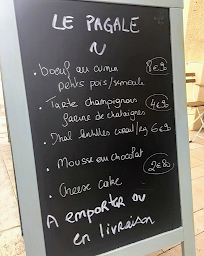 LE PAGALE
• boeuf au cumin 8€90
petits pois/semoule
• Tarte champignons 4€90
farine de chataignes
• Dhal lentilles corail/riz 6€90
• Mousse au chocolat
2€80
• Cheese cake
A emporter ou
en livraison